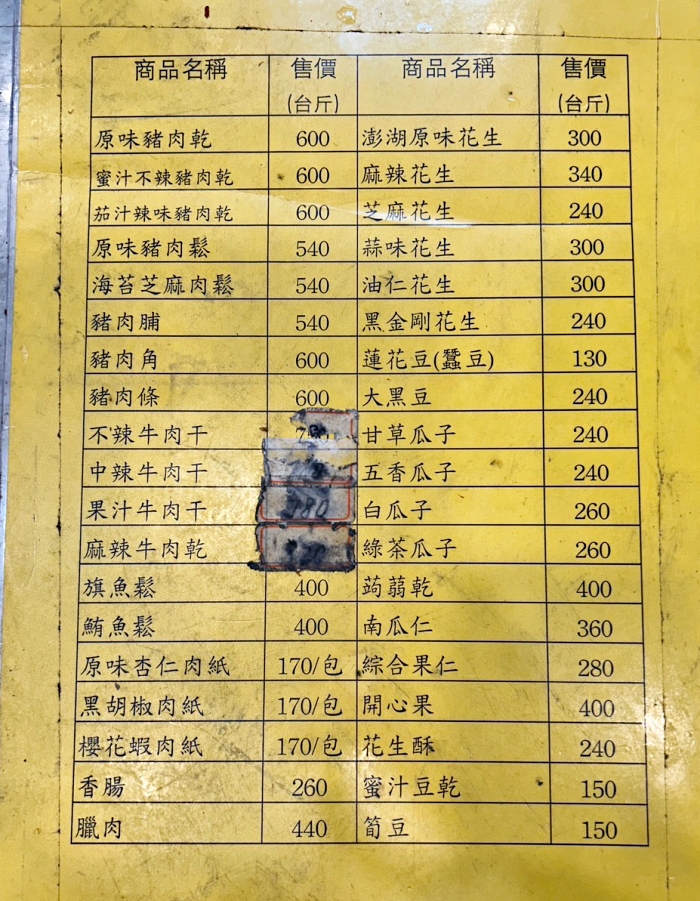 商品名稱 售價 商品名稱 售價
(台斤) (台斤)
原味豬肉乾 600 澎湖原味花生 300
蜜汁不辣豬肉乾 600 麻辣花生 340
茄汁辣味豬肉乾 600 芝麻花生 240
原味豬肉鬆 540 蒜味花生 300
海苔芝麻肉鬆 540 油仁花生 300
豬肉脯 540 黑金剛花生 240
豬肉角 600 蓮花豆(蠶豆) 130
豬肉條 600 大黑豆 240
不辣牛肉干 甘草瓜子 240
中辣牛肉干 五香瓜子 240
果汁牛肉干 白瓜子 260
麻辣牛肉乾 綠茶瓜子 260
旗魚鬆 400 蒟蒻乾 400
鮪魚鬆 400 南瓜仁 360
原味杏仁肉紙 170/包 綜合果仁 280
黑胡椒肉紙 170/包 開心果 400
櫻花蝦肉紙 170/包 花生酥 240
香腸 260 蜜汁豆乾 150
臘肉 440 筍豆 150